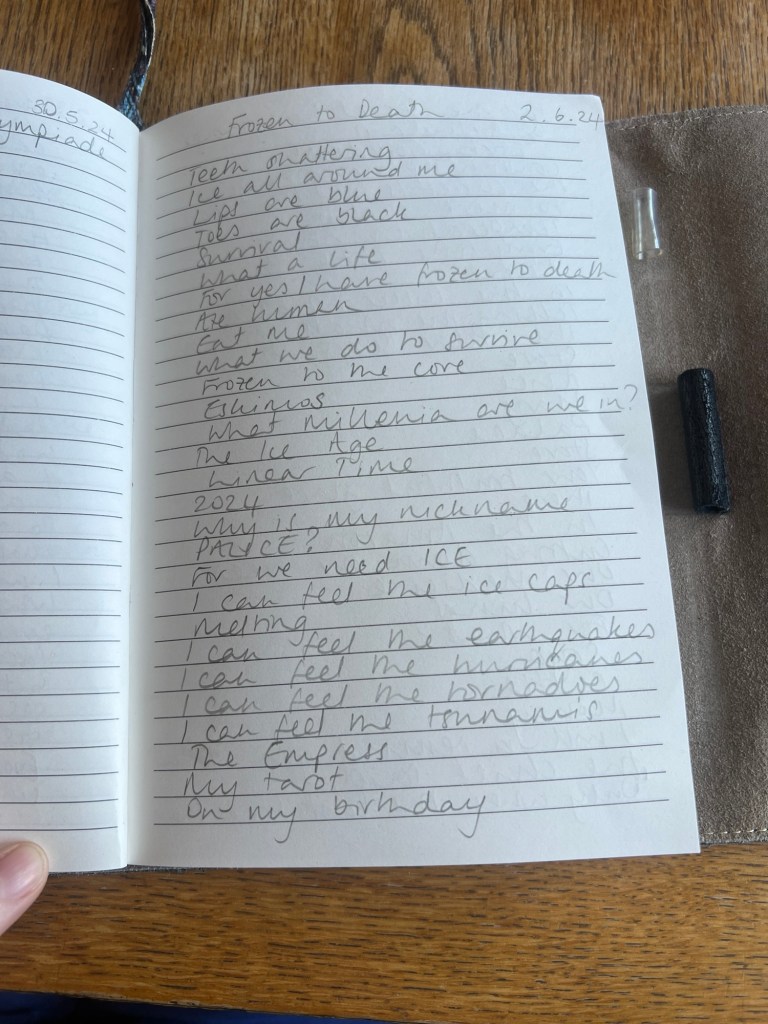 30.5.24
ympiade
Frozen to Death 2.6.24
Teeth shattering
Ice all around me
Lips are blue
Toes are black
Survival
What a life
For yes I have frozen to death
Are human
Eat me
What we do to survive
Frozen to the core
Eskimos
What millenia are we in?
The Ice Age
Linear Time
2024
Why is my nickname
PALICE?
For we need ICE
I can feel the ice caps
Melting
I can feel the earthquakes
I can feel the hurricanes
I can feel the tornadoes
I can feel the tsunamis
The Empress
My tarot
On my birthday